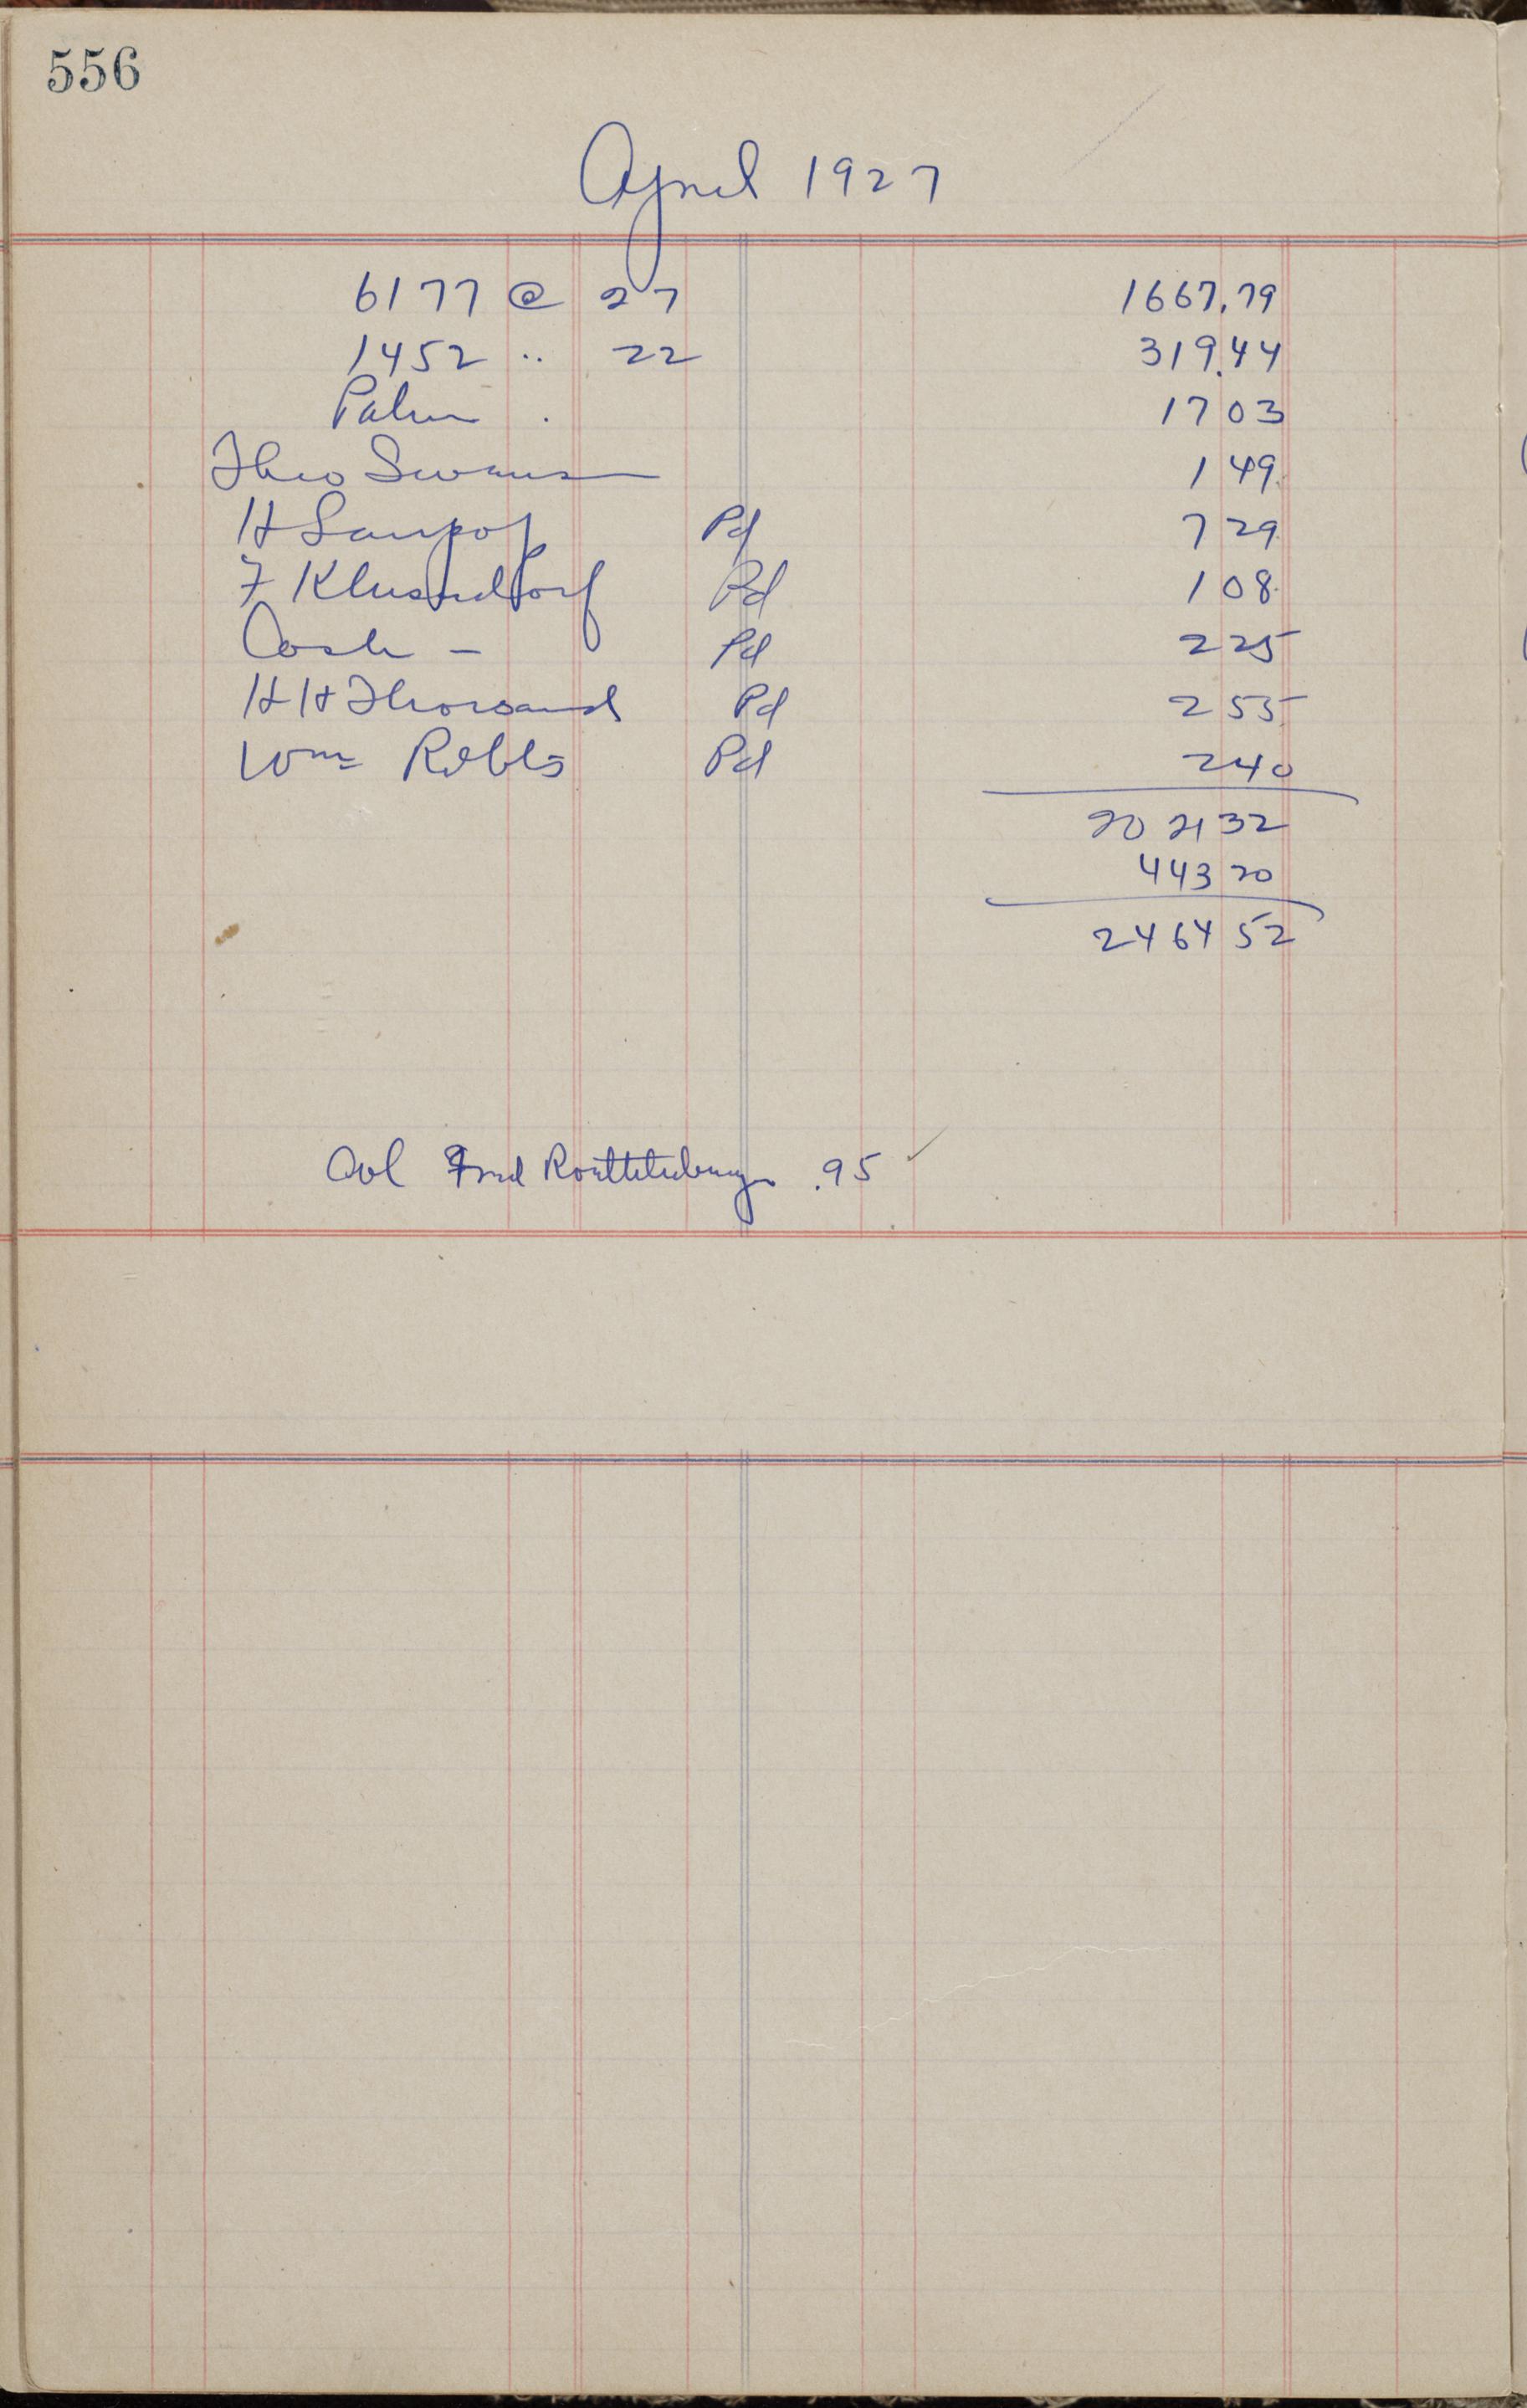 556
April 1927
6177 @ 27 1667.79
1452 " 22 319.44
Palm 17 03
Theo Swans 1 49
H Pd 7 29
F Klusendorf Pd 1 08
Cash - Pd 2 25
H H Thorsand Pd 2 55
Wm Robbs Pd 2 40
20 21 32
443 20
2464 52
Col Fred .95 ✓